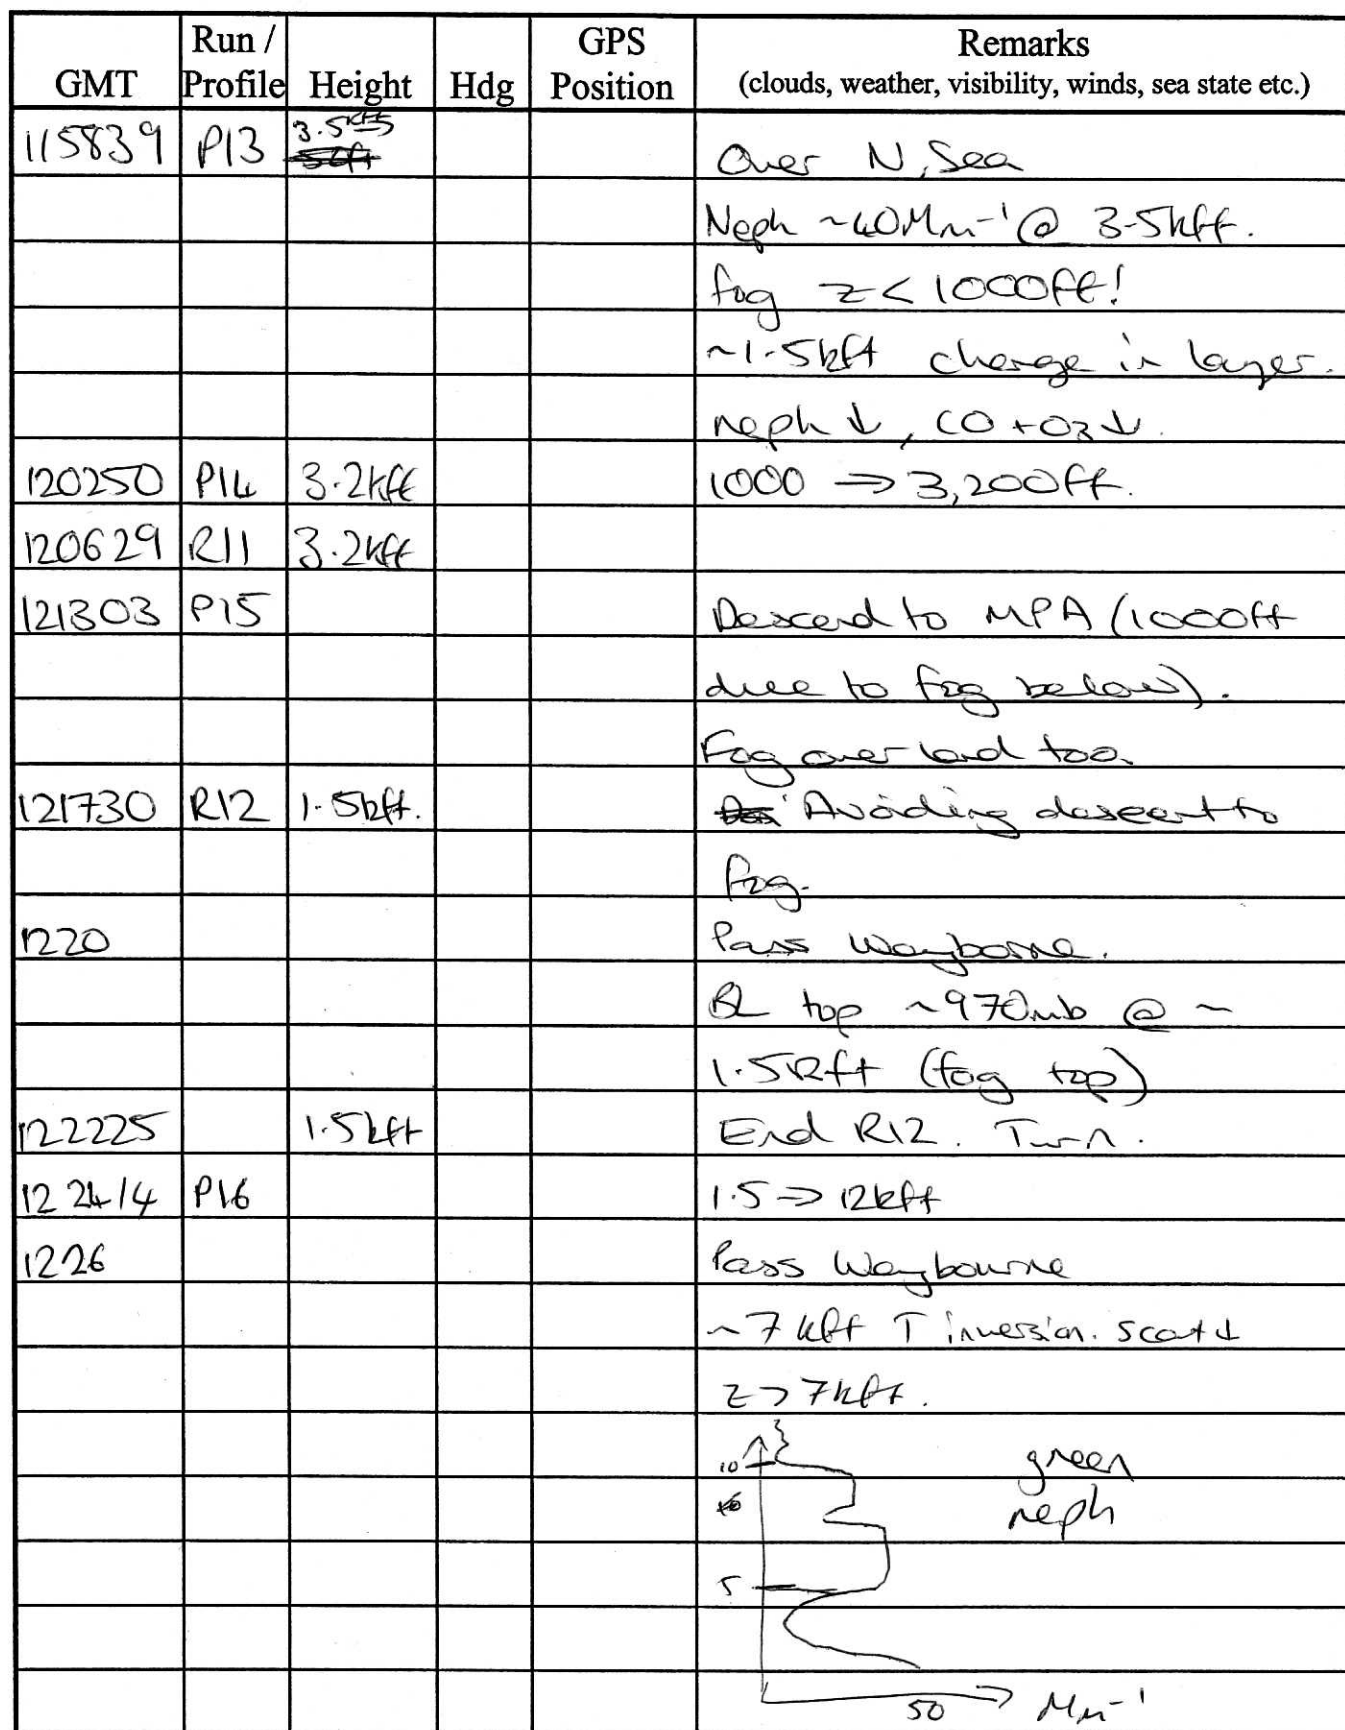 GMT Run / Profile Height Hdg GPS Position Remarks
(clouds, weather, visibility, winds, sea state etc.)
115839 P13 3.5kft Over N. Sea
Neph ~40Mm-1 @ 3.5kft.
fog z < 1000ft!
~1.5kft change in layer.
neph ↓, CO + O3 ↓.
120250 P14 3.2kft 1000 => 3,200ft.
120629 R11 3.2kft
121303 P15 Descend to MPA (1000ft
due to fog below).
Fog over land too.
121730 R12 1.5kft. Avoiding descent to
fog.
1220 Pass Wayborne.
BL top ~970mb @ ~
1.5kft (fog top)
122225 1.5kft End R12. Turn.
122414 P16 1.5 => 12kft
1226 Pass Waybourne
~7kft T inversion. scat ↓
z > 7kft.
10 green
neph
5
50 Mm-1